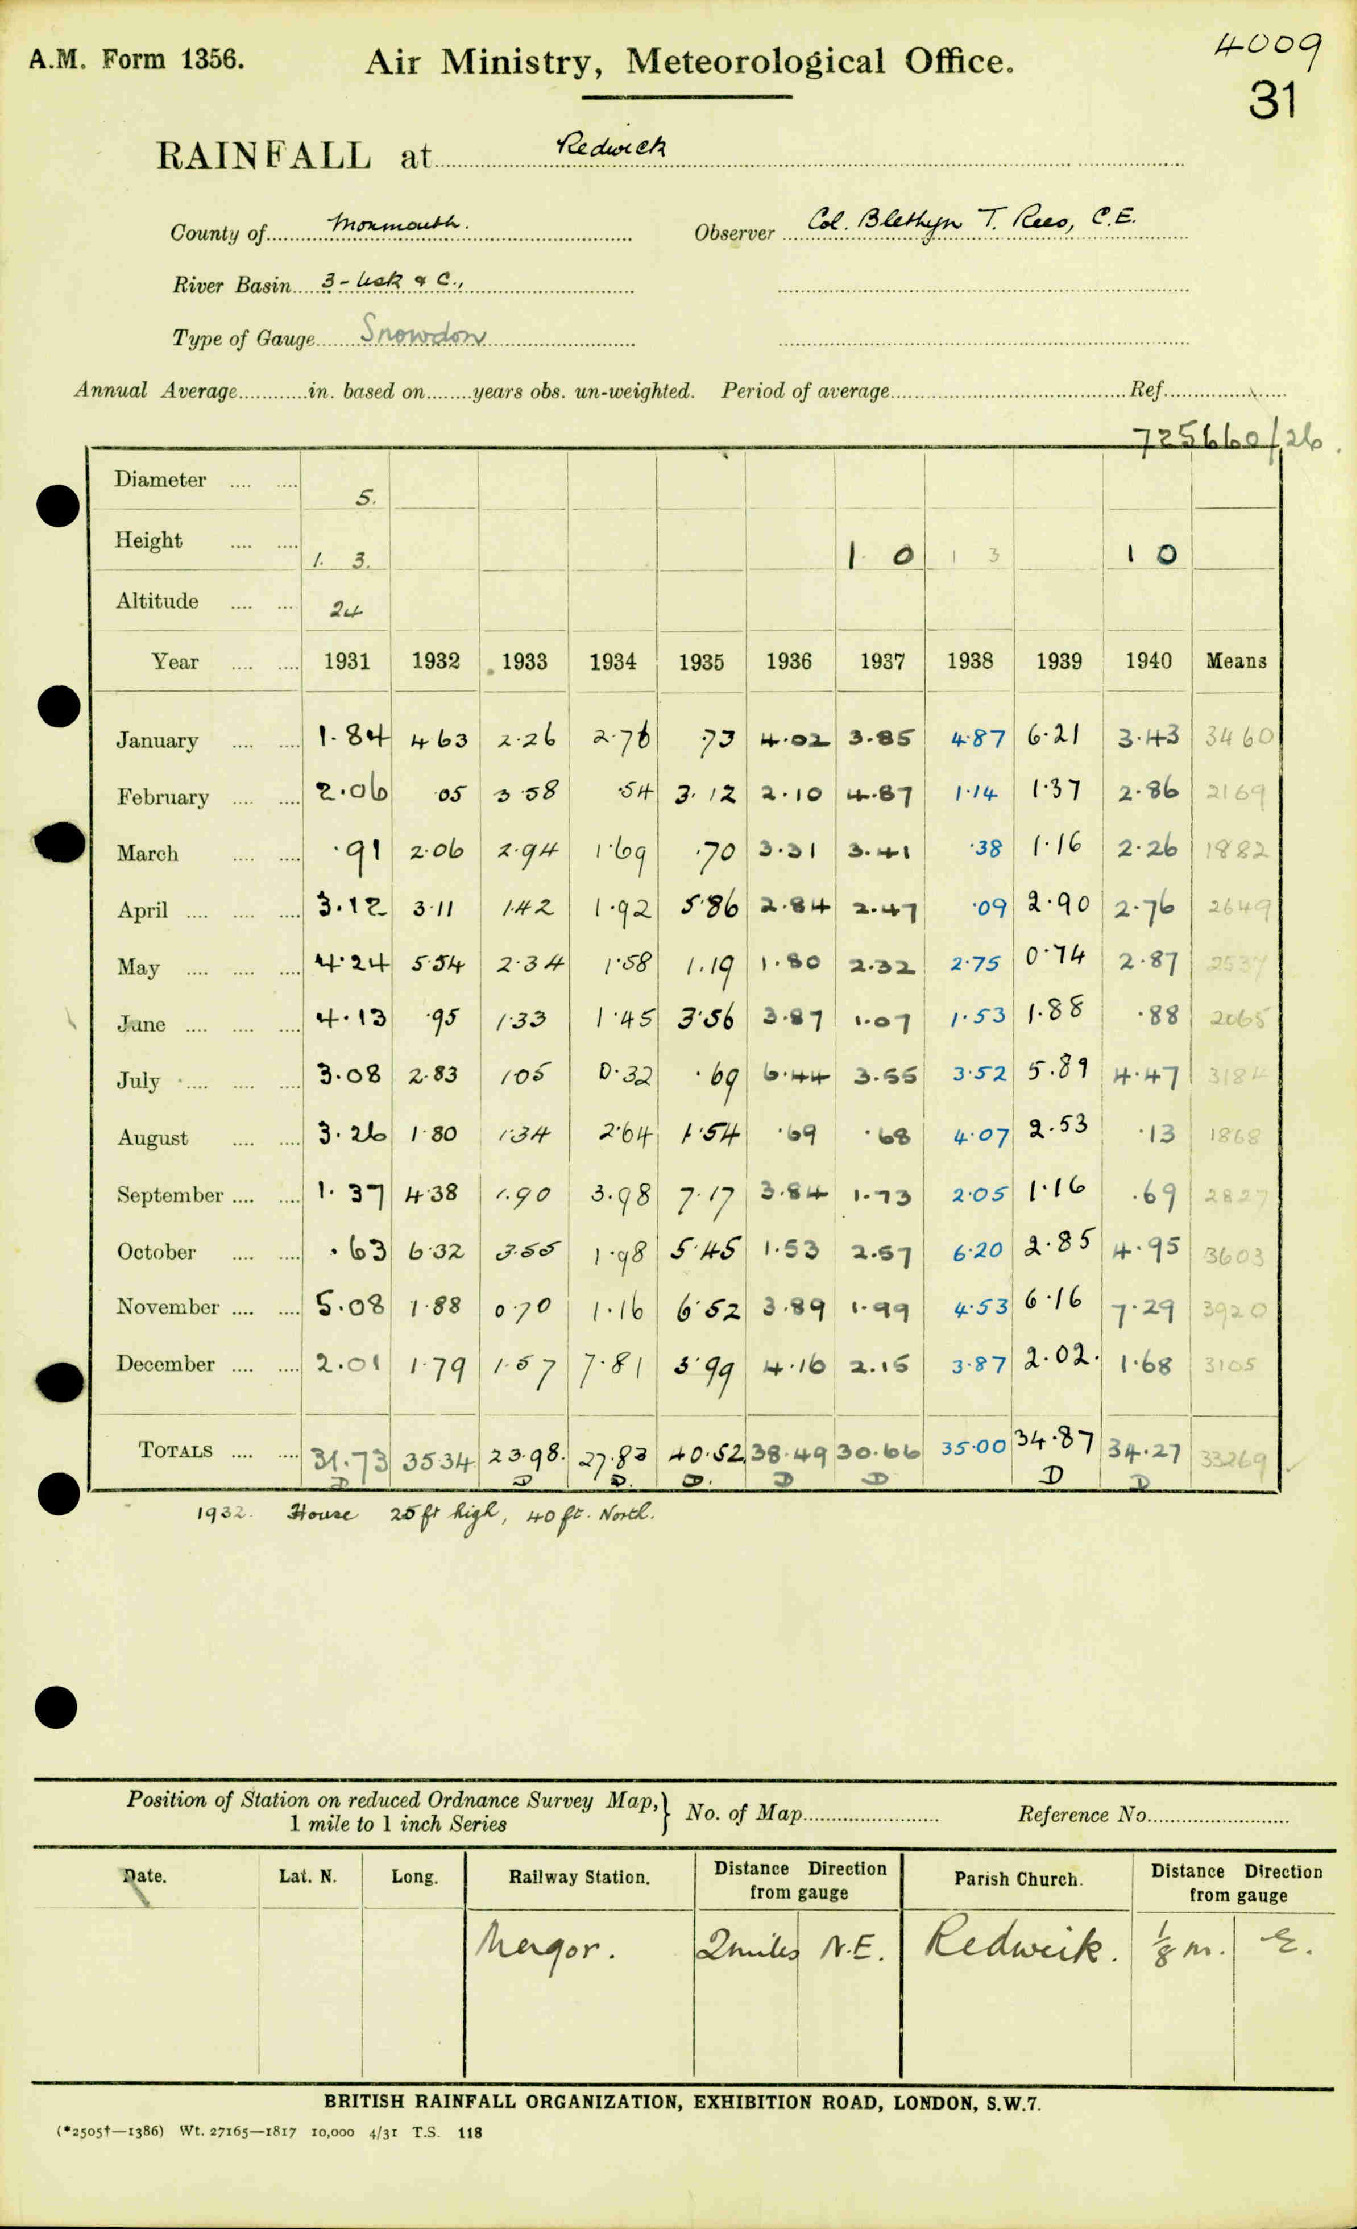 A.M. Form 1356.
Air Ministry, Meteorological Office.
4009
31
RAINFALL at Redwick
County of Monmouth.
Observer Col. Blethyn T. Rees, C.E.
River Basin 3 - Usk & C.,
Type of Gauge Snowdon
Annual Average............in. based on........years obs. un-weighted. Period of average............ Ref............
725660/26.
Diameter .... .... 5.
Height .... .... 1. 3. 1 0 1 3 1 0
Altitude .... .... 24
Year .... .... 1931 1932 1933 1934 1935 1936 1937 1938 1939 1940 Means
January .... .... 1.84 4.63 2.26 2.76 .73 4.02 3.85 4.87 6.21 3.43 3460
February .... .... 2.06 .05 3.58 .54 3.12 2.10 4.87 1.14 1.37 2.86 2169
March .... .... .91 2.06 2.94 1.69 .70 3.31 3.41 .38 1.16 2.26 1882
April .... .... .... 3.12 3.11 1.42 1.92 5.86 2.84 2.47 .09 2.90 2.76 2649
May .... .... .... 4.24 5.54 2.34 1.58 1.19 1.80 2.32 2.75 0.74 2.87 2537
June .... .... .... 4.13 .95 1.33 1.45 3.56 3.87 1.07 1.53 1.88 .88 2065
July .... .... .... 3.08 2.83 1.05 0.32 .69 6.44 3.55 3.52 5.89 4.47 3184
August .... .... 3.26 1.80 1.34 2.64 1.54 .69 .68 4.07 2.53 .13 1868
September .... .... 1.37 4.38 1.90 3.98 7.17 3.84 1.73 2.05 1.16 .69 2827
October .... .... .63 6.32 3.55 1.98 5.45 1.53 2.57 6.20 2.85 4.95 3603
November .... .... 5.08 1.88 0.70 1.16 6.52 3.89 1.99 4.53 6.16 7.29 3920
December .... .... 2.01 1.79 1.57 7.81 3.99 4.16 2.15 3.87 2.02. 1.68 3105
TOTALS .... .... 31.73 35.34 23.98. 27.83 40.52 38.49 30.66 35.00 34.87 34.27 33269
D D D. D. D D D D
1932. House 25 ft high, 40 ft. North.
Position of Station on reduced Ordnance Survey Map, } No. of Map............ Reference No............
1 mile to 1 inch Series
Date. Lat. N. Long. Railway Station. Distance Direction from gauge Parish Church. Distance Direction from gauge
Magor. 2 miles N.E. Redwick. 1/8 m. E.
BRITISH RAINFALL ORGANIZATION, EXHIBITION ROAD, LONDON, S.W.7.
(*2505†—1386) Wt. 27165—1817 10,000 4/31 T.S. 118